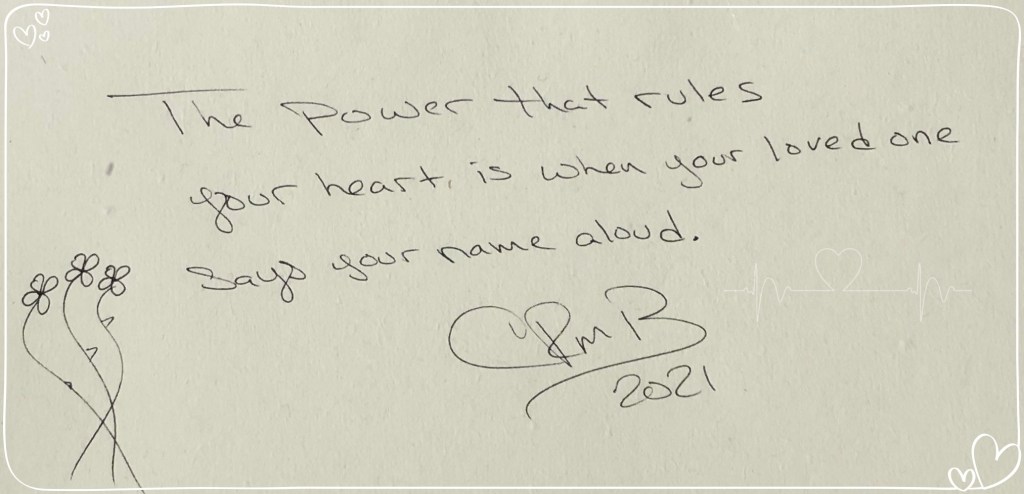 The Power that rules
your heart, is when your loved one
Says your name aloud.
CRmB
2021